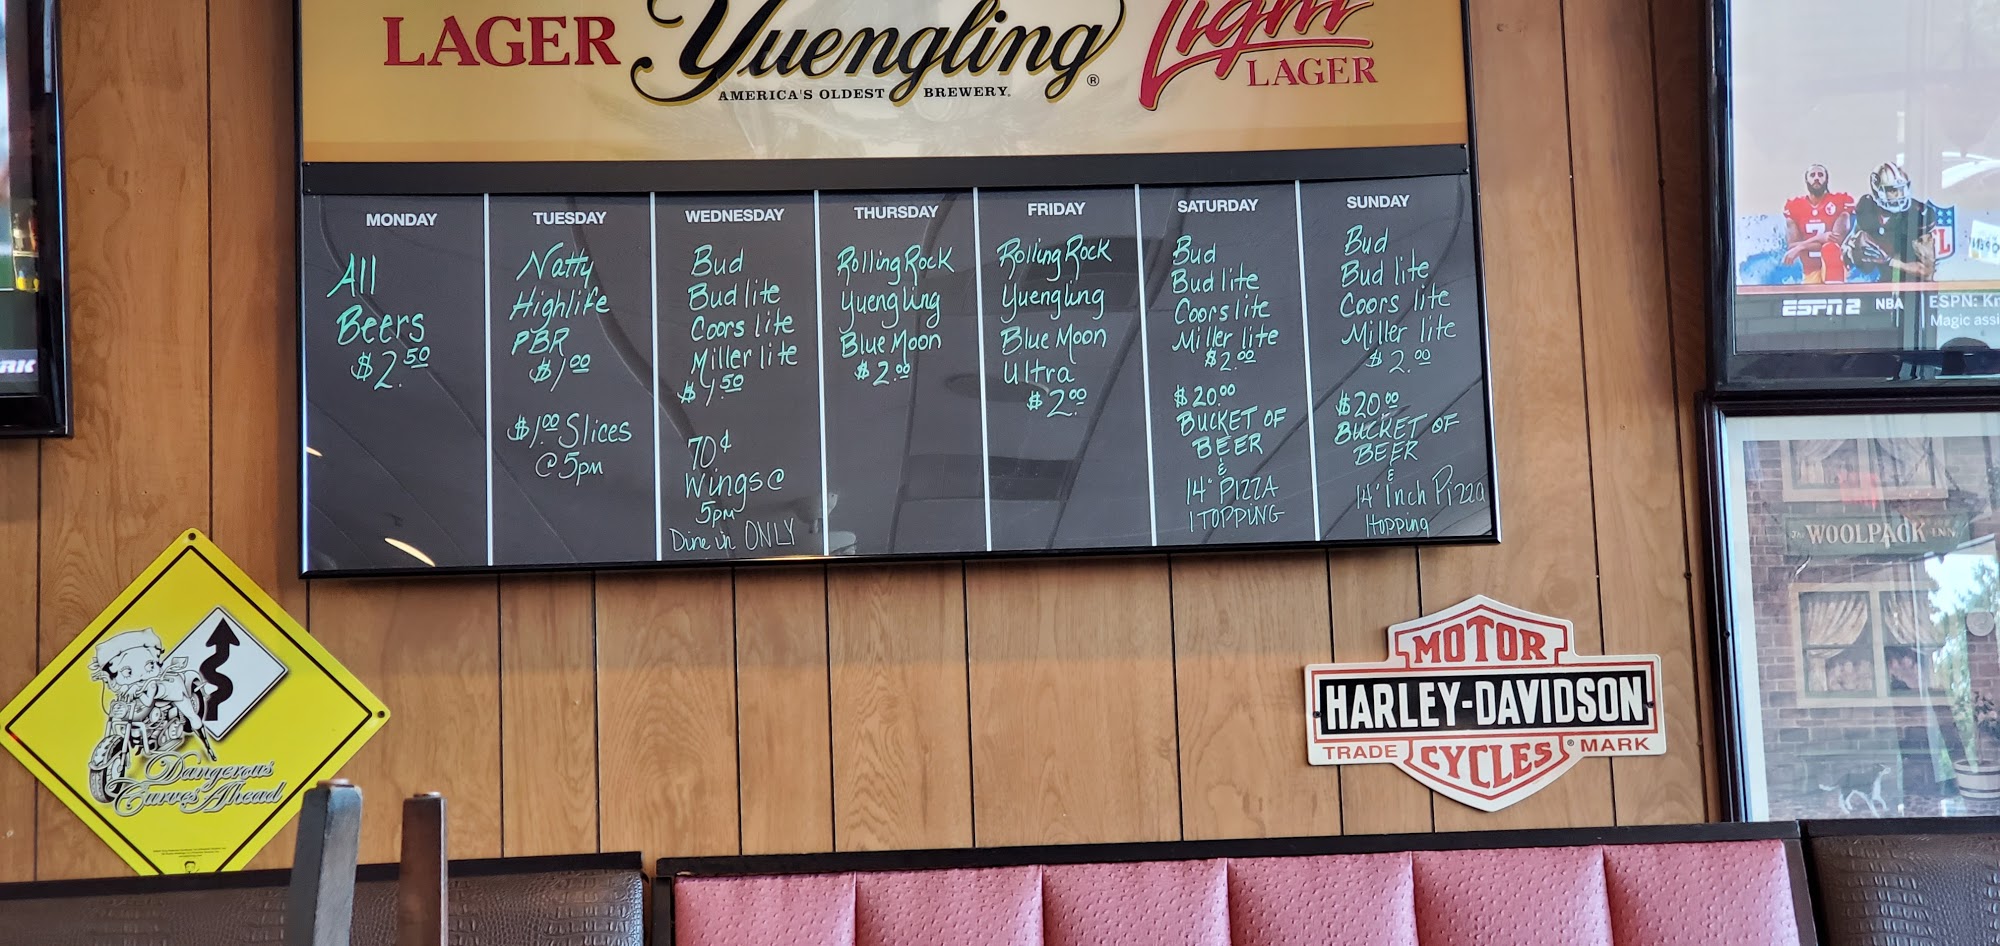 LAGER Yuengling® Light LAGER
AMERICA'S OLDEST BREWERY.
MONDAY
All
Beers
$2.50
TUESDAY
Natty
Highlife
PBR
$1.00
$1.00 Slices
@5pm
WEDNESDAY
Bud
Bud lite
Coors lite
Miller lite
$1.50
70¢
Wings@
5pm
Dine in ONLY
THURSDAY
Rolling Rock
Yuengling
Blue Moon
$2.00
FRIDAY
Rolling Rock
Yuengling
Blue Moon
Ultra
$2.00
SATURDAY
Bud
Bud lite
Coors lite
Miller lite
$2.00
$20.00
BUCKET OF
BEER
&
14" PIZZA
1 TOPPING
SUNDAY
Bud
Bud lite
Coors lite
Miller lite
$2.00
$20.00
BUCKET OF
BEER
&
14' Inch Pizza
1 topping
ESPN2 NBA ESPN:
Magic
WOOLPACK INN
Dangerous
Curves Ahead
MOTOR
HARLEY-DAVIDSON
TRADE CYCLES® MARK